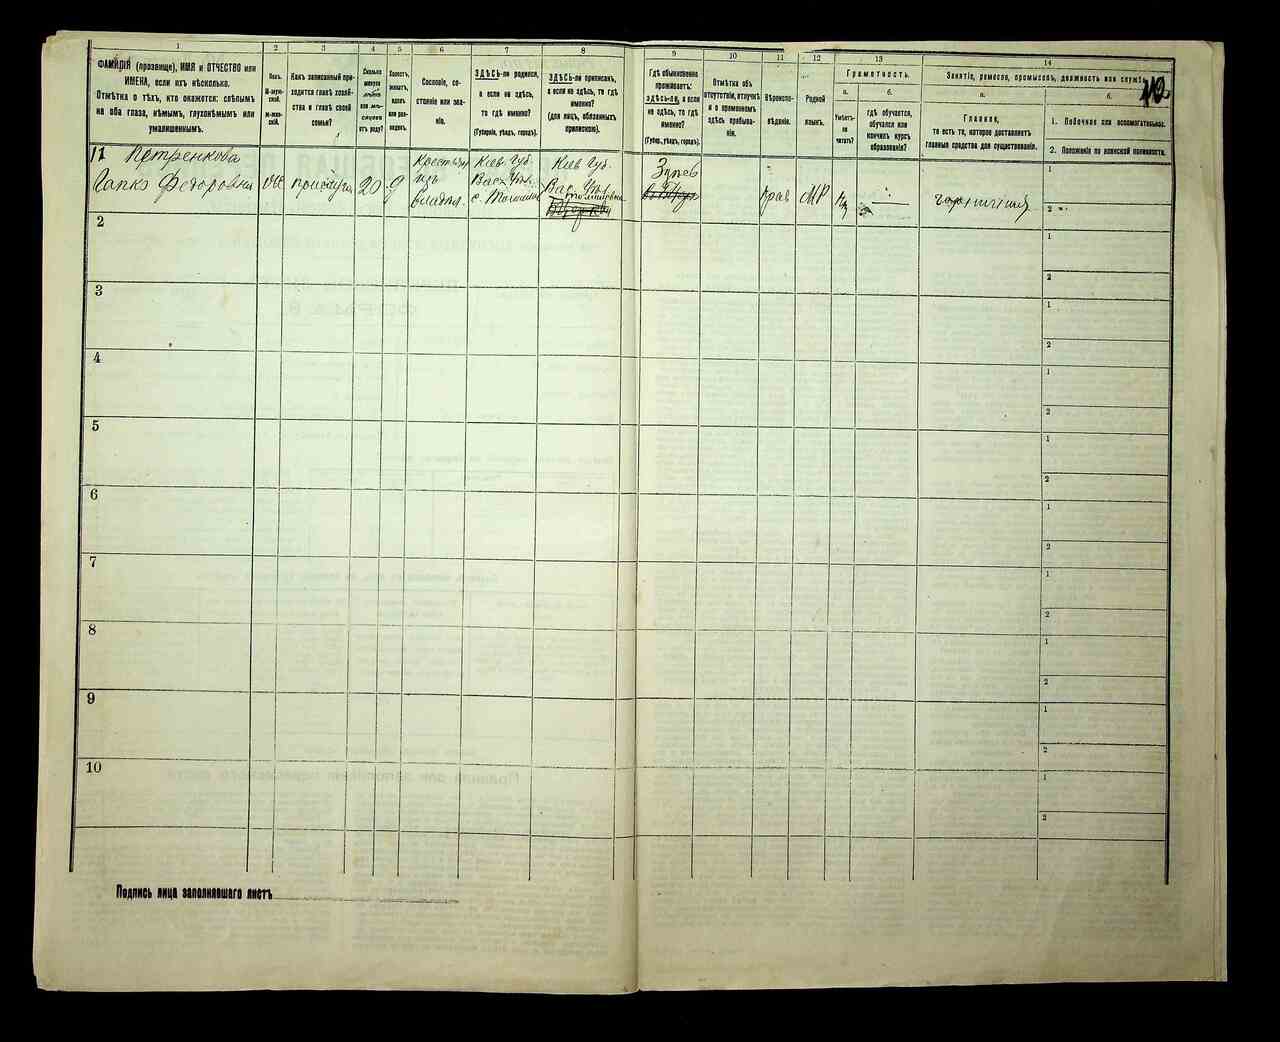 1
ФАМИЛІЯ (прозвище), ИМЯ и ОТЧЕСТВО или
ИМЕНА, если ихъ нѣсколько.
Отмѣтка о тѣхъ, кто окажется: слѣпымъ
на оба глаза, нѣмымъ, глухонѣмымъ или
умалишеннымъ.
2
Полъ.
М-муж-
ской.
Ж-жен-
скій.
3
Какъ записанный при-
ходится главѣ хозяй-
ства и главѣ своей
семьи?
4
Сколько
минуло
лѣтъ
или мѣ-
сяцевъ
отъ роду?
5
Холостъ,
женатъ,
вдовъ
или раз-
веденъ.
6
Сословіе, со-
стояніе или зва-
ніе.
7
ЗДѢСЬ-ли родился,
а если не здѣсь,
то гдѣ именно?
(Губернія, уѣздъ, городъ).
8
ЗДѢСЬ-ли приписанъ,
а если не здѣсь, то гдѣ
именно?
(для лицъ, обязанныхъ
припискою).
9
Гдѣ обыкновенно
проживаетъ:
здѣсь-ли, а если
не здѣсь, то гдѣ
именно?
(Губер., уѣздъ, городъ).
10
Отмѣтка объ
отсутствіи, отлучкѣ
и о временномъ
здѣсь пребыва-
ніи.
11
Вѣроиспо-
вѣданіе.
12
Родной
языкъ.
13
Грамотность.
а.
Умѣетъ-
ли
читать?
б.
гдѣ обучается,
обучался или
кончилъ курсъ
образованія?
14
Занятіе, ремесло, промыселъ, должность или служба
а.
Главное,
то есть то, которое доставляетъ
главныя средства для существованія.
б.
1. Побочное или вспомогательное.
2. Положеніе по воинской повинности.
11 Петренкова
Гапка Федоровна
прислуга
20
Крестьян
изъ
владѣл.
Кіев. Губ.
Вас. Уѣз.
Кіев. Губ.
Вас. Уѣз.
Здѣсь
Прав
МР
горничная
1
2
2
1
2
3
1
2
4
1
2
5
1
2
6
1
2
7
1
2
8
1
2
9
1
2
10
1
2
Подпись лица заполнявшаго листъ